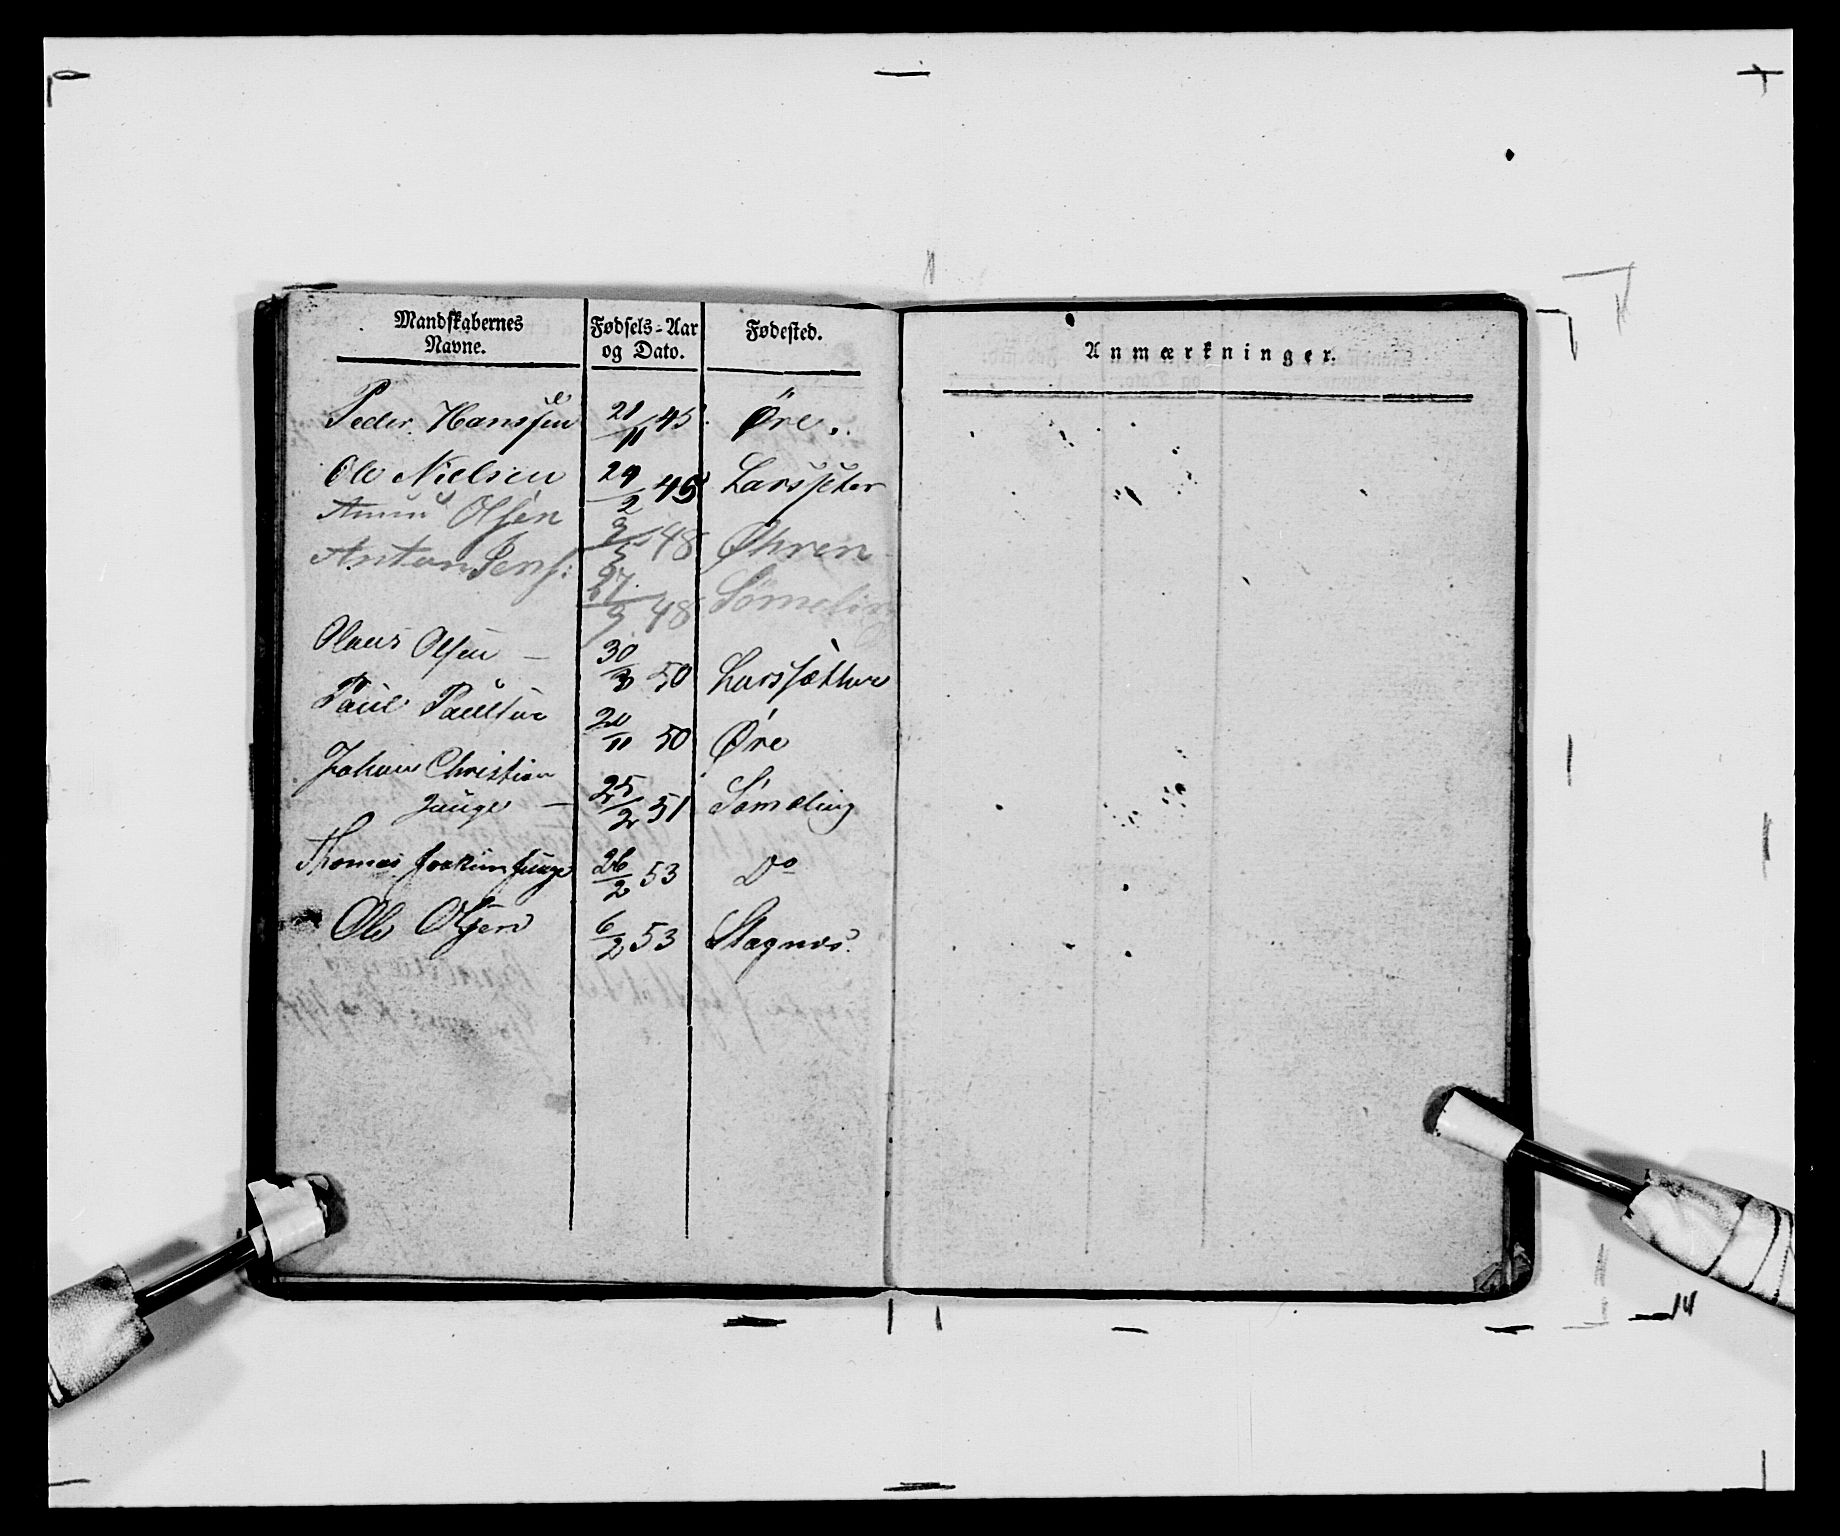 Mandskabernes Navne. Fødsels-Aar og Dato. Fødested.
Anmærkninger.
Peder Hanssen 21/11 45 Øre.
Ole Nielsen 29/2 45 Larssetter
Olsen 9/5 48 Øhren
Anton Jens: 27/9 48 Sømeling
Olaus Olsen — 30/3 50 Larssætter
Paul Paulsen 20/11 50 Øre
Johan Christian
Junge — 25/2 51 Sømeling
Thomas Joakim Junge 26/2 53 Do
Ole Olsen 6/2 53 Stagnes.
14